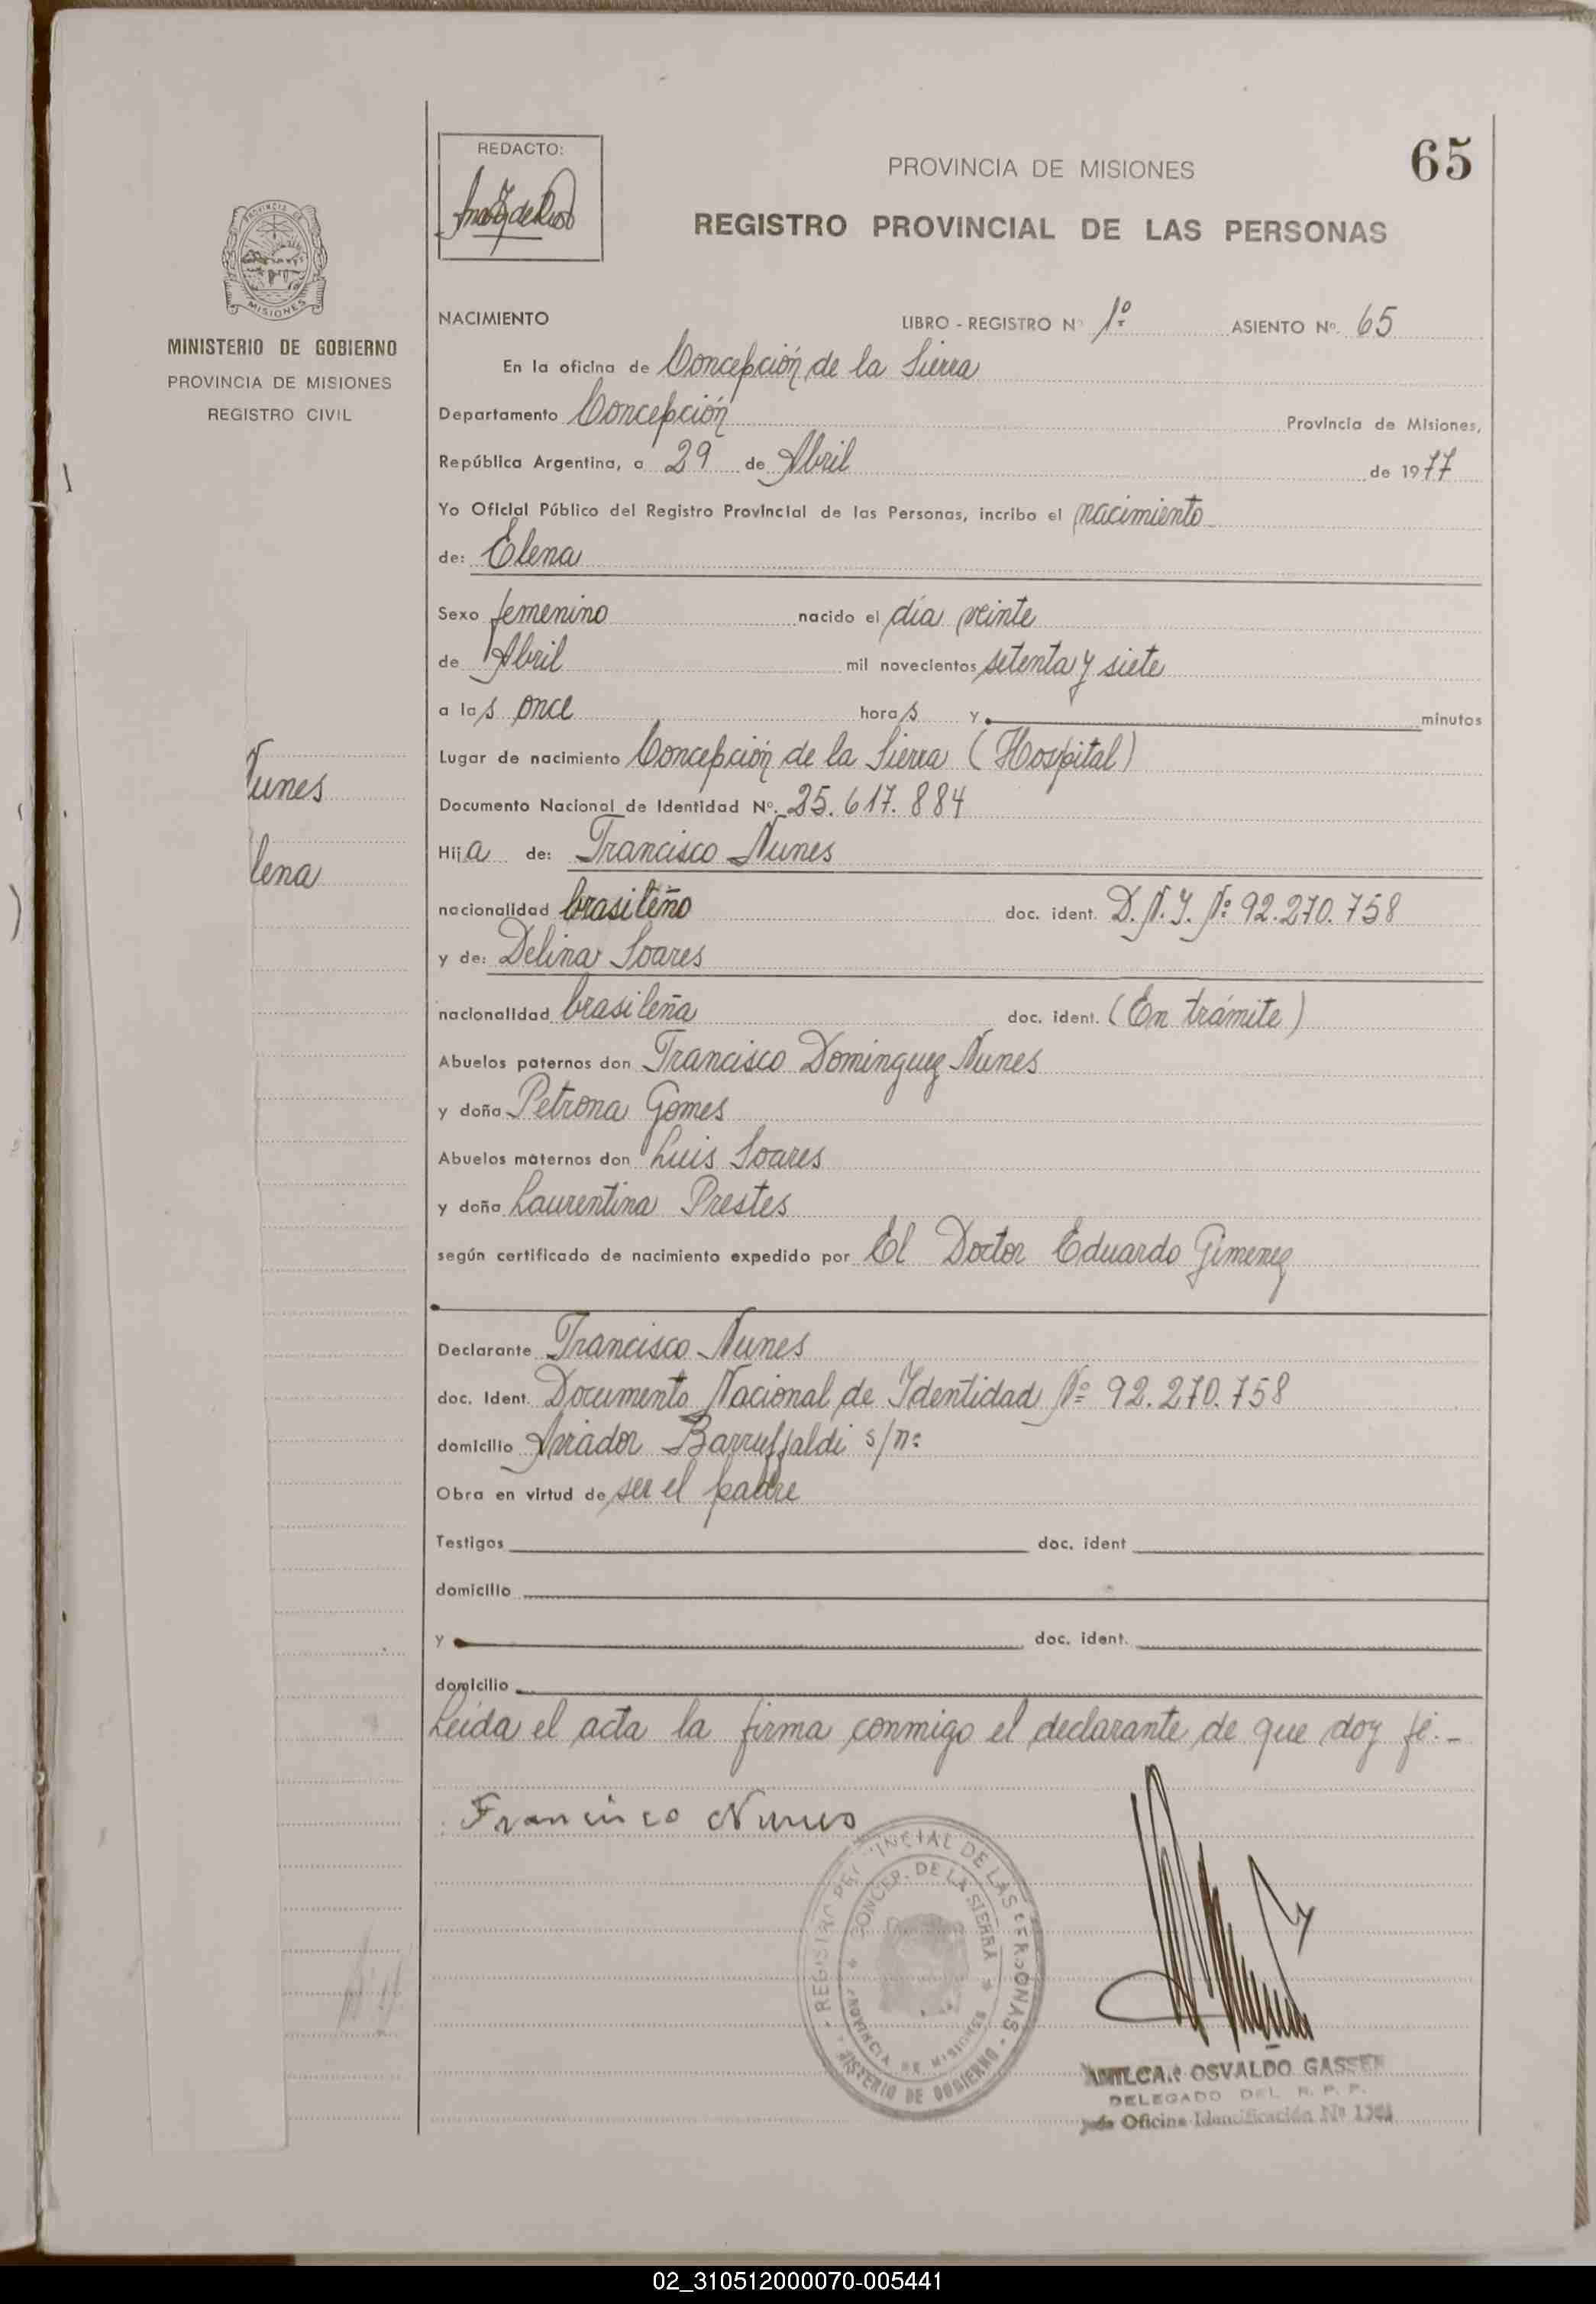 REDACTO:
PROVINCIA DE MISIONES
65
REGISTRO PROVINCIAL DE LAS PERSONAS
PROVINCIA DE
MISIONES
MINISTERIO DE GOBIERNO
PROVINCIA DE MISIONES
REGISTRO CIVIL
NACIMIENTO LIBRO - REGISTRO Nº 1º ASIENTO Nº. 65
En la oficina de Concepción de la Sierra
Departamento Concepción Provincia de Misiones,
República Argentina, a 29 de Abril de 1977
Yo Oficial Público del Registro Provincial de las Personas, incribo el nacimiento
de: Elena
Sexo femenino nacido el día veinte
de Abril mil novecientos setenta y siete
a las once horas y minutos
Lugar de nacimiento Concepción de la Sierra (Hospital)
Nunes
Documento Nacional de Identidad Nº. 25.617.884
Hija de: Francisco Nunes
lena
nacionalidad brasileño doc. ident. D.N.I. Nº 92.270.758
y de: Delina Soares
nacionalidad brasileña doc. ident. (En trámite)
Abuelos paternos don Francisco Domínguez Nunes
y doña Petrona Gomes
Abuelos maternos don Luis Soares
y doña Laurentina Prestes
según certificado de nacimiento expedido por El Doctor Eduardo Gimenez
Declarante Francisco Nunes
doc. Ident. Documento Nacional de Identidad Nº 92.270.758
domicilio Aviador Barruffaldi s/nº
Obra en virtud de ser el padre
Testigos doc. ident
domicilio
y doc. ident.
domicilio
Leída el acta la firma conmigo el declarante de que doy fé.-
Francisco Nunes
REGISTRO PROVINCIAL DE LAS PERSONAS
CONCEP. DE LA SIERRA
PROVINCIA DE MISIONES
MINISTERIO DE GOBIERNO
AMILCAR OSVALDO GASSEN
DELEGADO DEL R. P. P.
Oficina Identificación Nº
02_310512000070-005441